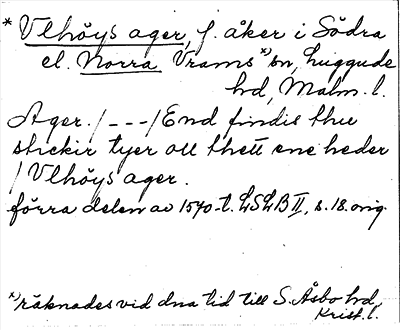 * Vlhöys ager, f. åker i Södra
el. Norra Vrams *) sn, Luggude
hd, Malm. l.
Ager. / - - - / End findis thue
stickir tyer oll thett ene heder
/ Vlhöys ager.
förra delen av 1570-t. LSLB II, s. 18. orig.
*) räknades vid dna tid till S. Åsbo hd,
Krist. l.